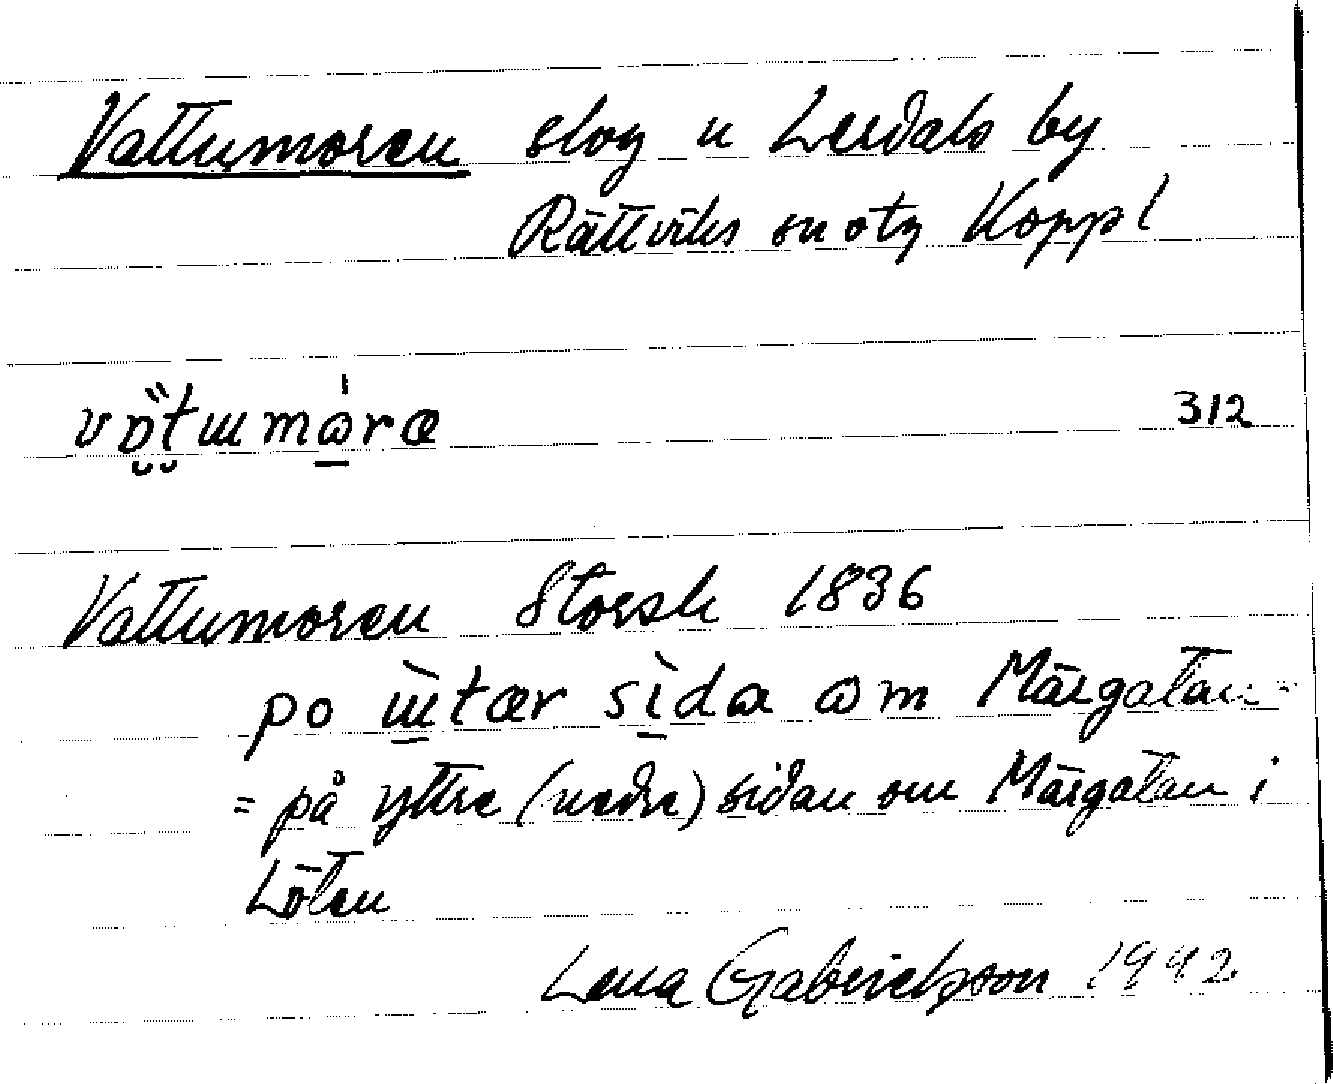 Vattumoren skog n Lerdals by
Rättviks sn otg Koppl
vɒtɯmɷ̀ræ
312
Vattumoren Storsk 1836
po ɯ̀tær sìdɷ ɷm Märgatan
= på yttre (nedre) sidan om Märgatan i
Löten
Lena Gabrielsson 1942